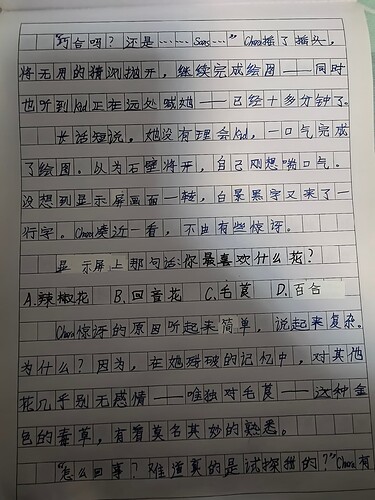 “巧合吗？还是……Sans…” Chara摇了摇头，
将无用的猜测抛开，继续完成绘图——同时
也听到Kid正在远处喊她——已经十多分钟了。
长话短说。她没有理会Kid，一口气完成
了绘图。以为石壁将开，自己刚想喘口气。
没想到显示屏画面一转，白景黑字又来了一
行字。Chara凑近一看，不由有些惊讶。
显示屏上那句话：你最喜欢什么花？
A.辣椒花 B.回音花 C.毛茛 D.百合
Chara惊讶的原因听起来简单，说起来复杂。
为什么？因为，在她残破的记忆中，对其他
花几乎别无感情——唯独对毛茛——这种金
色的毒草，有着莫名其妙的熟悉。
“怎么回事？难道真的是试探我的？”Chara有